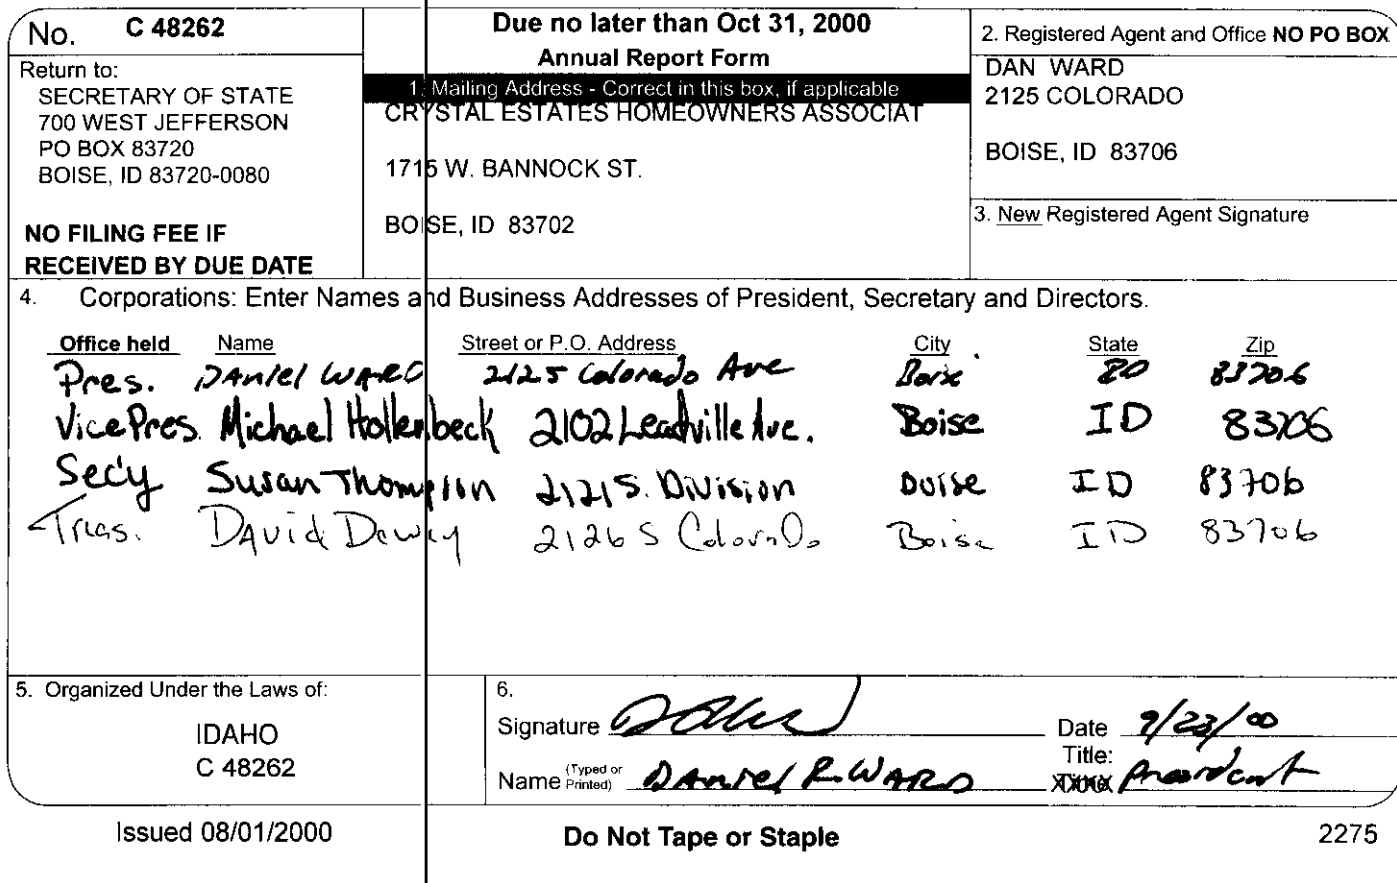 No. C 48262
Return to:
SECRETARY OF STATE
700 WEST JEFFERSON
PO BOX 83720
BOISE, ID 83720-0080
NO FILING FEE IF
RECEIVED BY DUE DATE
Due no later than Oct 31, 2000
Annual Report Form
1. Mailing Address - Correct in this box, if applicable
CRYSTAL ESTATES HOMEOWNERS ASSOCIAT
1715 W. BANNOCK ST.
BOISE, ID 83702
2. Registered Agent and Office NO PO BOX
DAN WARD
2125 COLORADO
BOISE, ID 83706
3. New Registered Agent Signature
4. Corporations: Enter Names and Business Addresses of President, Secretary and Directors.
Office held Name Street or P.O. Address City State Zip
Pres. Daniel Ward 2125 Colorado Ave Boise ID 83706
Vice Pres. Michael Hollenbeck 2102 Leadville Ave. Boise ID 83706
Secy Susan Thompson 2121 S. Division Boise ID 83706
Treas. David Dewey 2126 S Colorado Boise ID 83706
5. Organized Under the Laws of:
IDAHO
C 48262
6.
Signature Date 9/23/00
Name (Typed or Printed) Daniel R. Ward Title: President
Issued 08/01/2000 Do Not Tape or Staple 2275